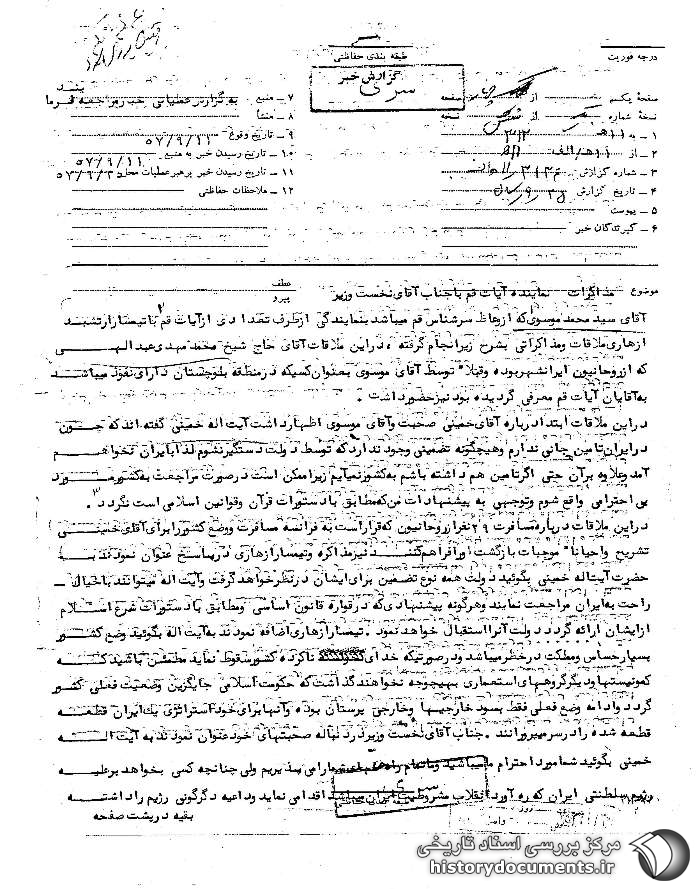 درجه فوریت
طبقه بندی حفاظتی
گزارش خبر
سری
صفحه یکم از صفحه
نسخه شماره از نسخه
۱ ـ به ۳۱۲
۲ ـ از ۱۱ه‍/الف
۳ ـ شماره گزارش
۴ ـ تاریخ گزارش
۵ ـ پیوست
۶ ـ گیرندگان خبر
۷ ـ منبع به گزارش عملیاتی خبر مراجعه فرما یند
۸ ـ منشأ
۹ ـ تاریخ وقوع ۵۷/۹/۱۱
۱۰ ـ تاریخ رسیدن خبر به منبع ۵۷/۹/۱۱
۱۱ ـ تاریخ رسیدن خبر برهبر عملیات محله
۱۲ ـ ملاحظات حفاظتی
موضوع مذاکرات نماینده آیات قم با جناب آقای نخست وزیر
عطف
پیرو
آقای سید محمد موسوی که از وعاظ سرشناس قم میباشد بنمایندگی از طرف تعدادی از آیات قم با تیمسار ارتشبد
ازهاری ملاقات و مذاکراتی بشرح زیر انجام گرفته ، در این ملاقات آقای حاج شیخ محمد مهدی عبدالهی
که از روحانیون ایرانشهر بوده و قبلا" توسط آقای موسوی بعنوان کسیکه در منطقه بلوچستان دارای نفوذ میباشد
به آقایان آیات قم معرفی گردیده بود نیز حضور داشت .
در این ملاقات ابتدا درباره آقای خمینی صحبت و آقای موسوی اظهار داشت آیت اله خمینی گفته اند که چون
در ایران تامین جانی ندارم و هیچگونه تضمینی وجود ندارد که توسط دولت دستگیر نشوم لذا بایران نخواهم
آمد و علاوه بر آن حتی اگر تامین هم داشته باشم به کشور نمیآیم زیرا ممکن است در صورت مراجعت به کشور مورد
بی احترامی واقع شوم و توجهی به پیشنهادات من که مطابق با دستورات قرآن و قوانین اسلامی است نگردد .
در این ملاقات درباره مسافرت ۲۹ نفر از روحانیون که قرار است به فرانسه مسافرت و وضع کشور را برای آقای خمینی
تشریح و احیانا" موجبات بازگشت او را فراهم کنند نیز مذاکره و تیمسار ازهاری در پاسخ عنوان نمودند به
حضرت آیت اله خمینی بگوئید دولت همه نوع تضمین برای ایشان در نظر خواهد گرفت و آیت اله میتوانند با خیال ـ
راحت به ایران مراجعت نمایند و هرگونه پیشنهادی که در قواره قانون اساسی و مطابق با دستورات شرع اسلام
از ایشان ارائه گردد دولت آنرا استقبال خواهد نمود . تیمسار ازهاری اضافه نمودند به آیت اله بگوئید وضع کشور
بسیار حساس و مملکت در خطر میباشد و در صورتیکه خدای ناکرده کشور سقوط نماید مطمئن باشید که
کمونیستها و دیگر گروههای استعماری بهیچوجه نخواهند گذاشت که حکومت اسلامی جایگزین وضعیت فعلی کشور
گردد و ادامه وضع فعلی فقط بسود خارجیها و خارجی پرستان بوده و آنها برای خود استراتژی یک ایران قطعه
قطعه شده را در سر میپرورانند . جناب آقای نخست وزیر در دنباله صحبتهای خود عنوان نمودند به آیت اله
خمینی بگوئید شما مورد احترام ما میباشید و ما شما را می پذیریم ولی چنانچه کسی بخواهد بر علیه
رژیم سلطنتی ایران که ره آورد انقلاب مشروطیت ایران میباشد اقدامی نماید و داعیه دگرگونی رژیم را داشته
بقیه در پشت صفحه
مرکز بررسی اسناد تاریخی
historydocuments.ir